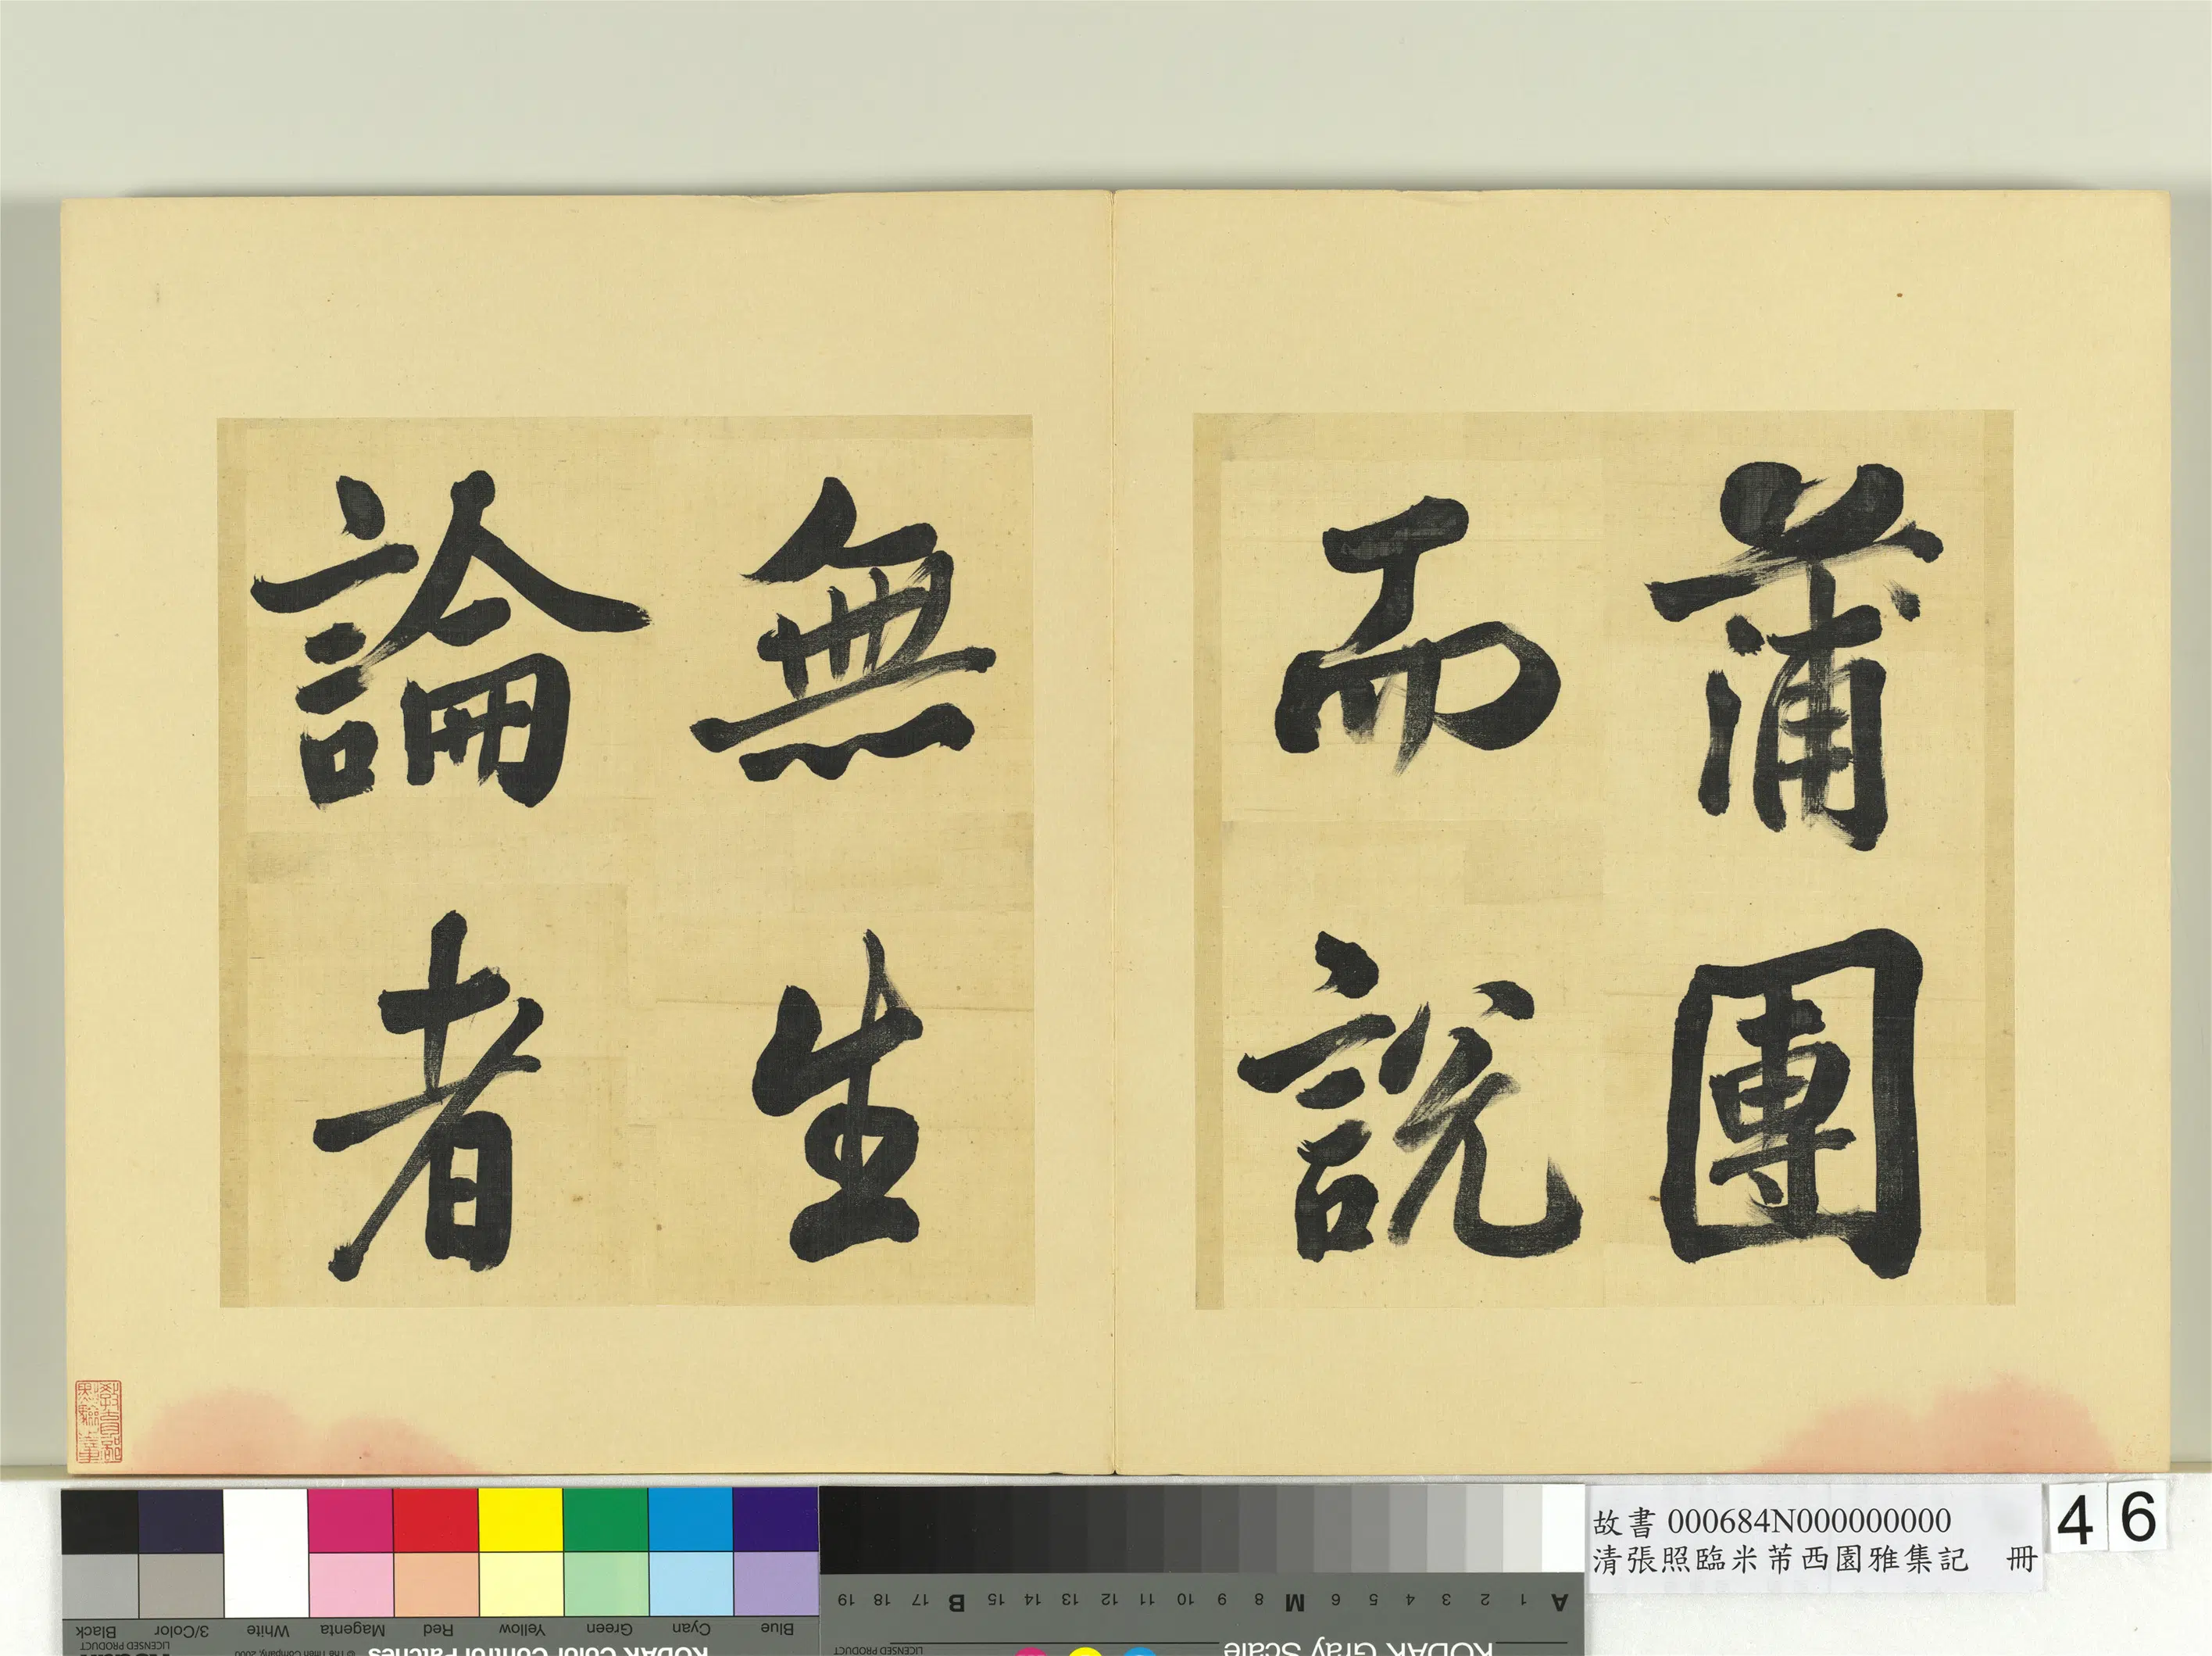 蒲團
而說
無生
論者
教育部
點驗之章
故書 000684N000000000
清張照臨米芾西園雅集記 冊
46
Black
3/Color
White
Magenta
Red
Yellow
Green
Cyan
Blue
LICENSED PRODUCT
© The Tiffen Company, 2000
KODAK Color Control Patches
A 1 2 3 4 5 6 M 8 9 10 11 12 13 14 15 B 17 18 19
KODAK Gray Scale
LICENSED PRODUCT